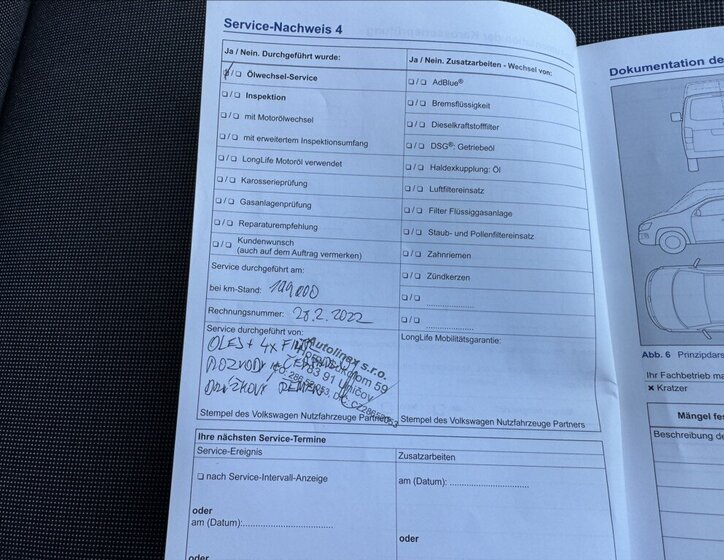 Service-Nachweis 4
Ja / Nein. Durchgeführt wurde:
❏ / ❏ Ölwechsel-Service
❏ / ❏ Inspektion
❏ / ❏ mit Motorölwechsel
❏ / ❏ mit erweitertem Inspektionsumfang
❏ / ❏ LongLife Motoröl verwendet
❏ / ❏ Karosserieprüfung
❏ / ❏ Gasanlagenprüfung
❏ / ❏ Reparaturempfehlung
❏ / ❏ Kundenwunsch
(auch auf dem Auftrag vermerken)
Service durchgeführt am:
bei km-Stand: 199000
Rechnungsnummer: 28.2.2022
Service durchgeführt von:
OLEJ + 4x
ROZVODY
DRÁŽKOVÝ ŘEMEN
Autolinex s.r.o.
59
783 91 Uničov
Stempel des Volkswagen Nutzfahrzeuge Partners
Ja / Nein. Zusatzarbeiten - Wechsel von:
❏ / ❏ AdBlue®
❏ / ❏ Bremsflüssigkeit
❏ / ❏ Dieselkraftstofffilter
❏ / ❏ DSG®: Getriebeöl
❏ / ❏ Haldexkupplung: Öl
❏ / ❏ Luftfiltereinsatz
❏ / ❏ Filter Flüssiggasanlage
❏ / ❏ Staub- und Pollenfiltereinsatz
❏ / ❏ Zahnriemen
❏ / ❏ Zündkerzen
❏ / ❏ ....................
❏ / ❏ ....................
LongLife Mobilitätsgarantie:
Stempel des Volkswagen Nutzfahrzeuge Partners
Ihre nächsten Service-Termine
Service-Ereignis
❏ nach Service-Intervall-Anzeige
oder
am (Datum):..............................
oder
Zusatzarbeiten
am (Datum): ..........................
oder
Dokumentation de
Abb. 6 Prinzipdars
Ihr Fachbetrieb ma
✖ Kratzer
Mängel fes
Beschreibung de